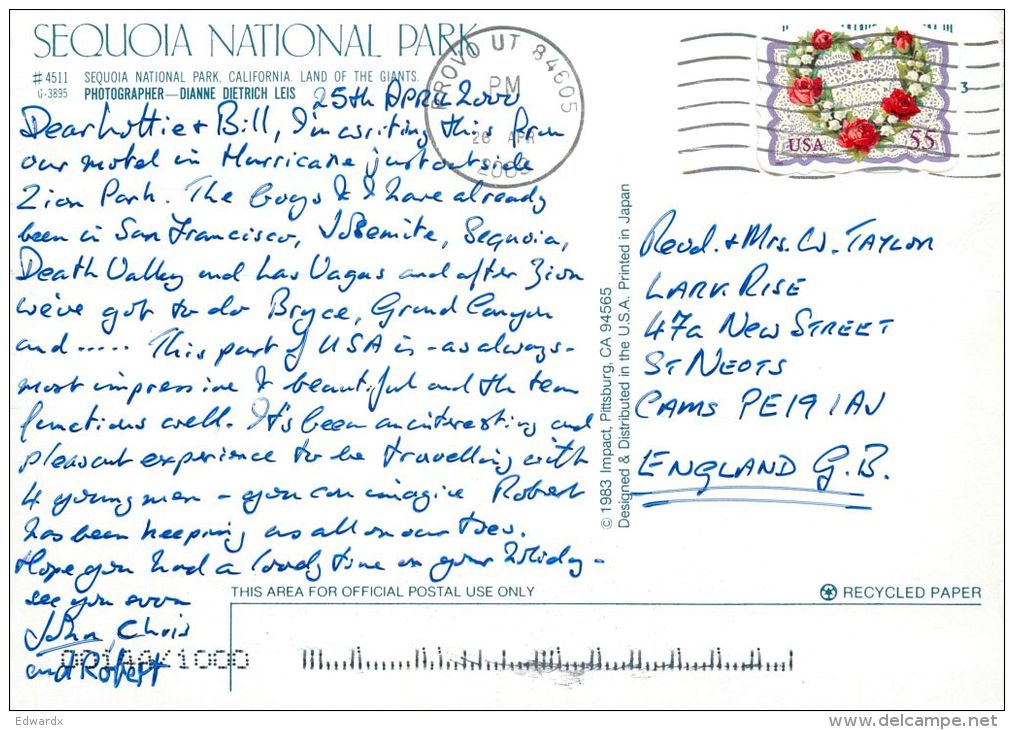 SEQUOIA NATIONAL PARK
#4511 SEQUOIA NATIONAL PARK, CALIFORNIA. LAND OF THE GIANTS.
G-3895 PHOTOGRAPHER—DIANNE DIETRICH LEIS
25th APRIL 2000
Dear Lottie + Bill, I'm writing this from
our motel in Hurricane just outside
Zion Park. The boys & I have already
been in San Francisco, Yosemite, Sequoia,
Death Valley and Las Vagas and after Zion
we've got to do Bryce, Grand Canyon
and ..... This part of USA is - as always -
most impressive & beautiful and the team
functions well. It's been an interesting and
pleasant experience to be travelling with
4 young men - you can imagine Robert
has been keeping us all on our toes.
Hope you had a lovely time on your holiday -
see you soon
John, Chris
and Robert
PROVO UT 84605
PM
26 APR
2000
USA 55
3
Revd. + Mrs. W. TAYLOR
LARK RISE
47a NEW STREET
ST NEOTS
CAMS PE19 1AJ
ENGLAND G.B.
© 1983 Impact, Pittsburg, CA 94565
Designed & Distributed in the U.S.A. Printed in Japan
THIS AREA FOR OFFICIAL POSTAL USE ONLY
RECYCLED PAPER
Edwardx
www.delcampe.net